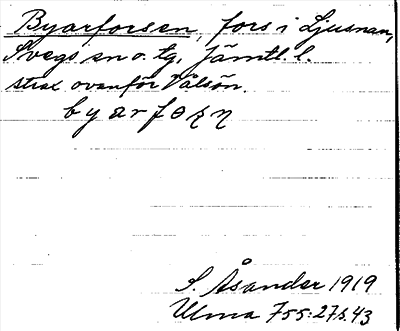 Byarforsen, fors i Ljusnan,
Svegs sn o. tg, Jämtl. l.
strax ovanför Välsön.
b y a r f o ʂ ŋ
S. Åsander 1919
Ulma 755:27 s. 43